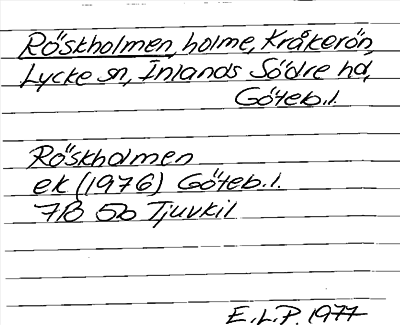 Röskholmen, holme, Kråkerön,
Lycke sn, Inlands Södre hd,
Göteb.l.
Röskholmen
ek (1976) Göteb.l.
7B 5b Tjuvkil
E.L.P. 1977